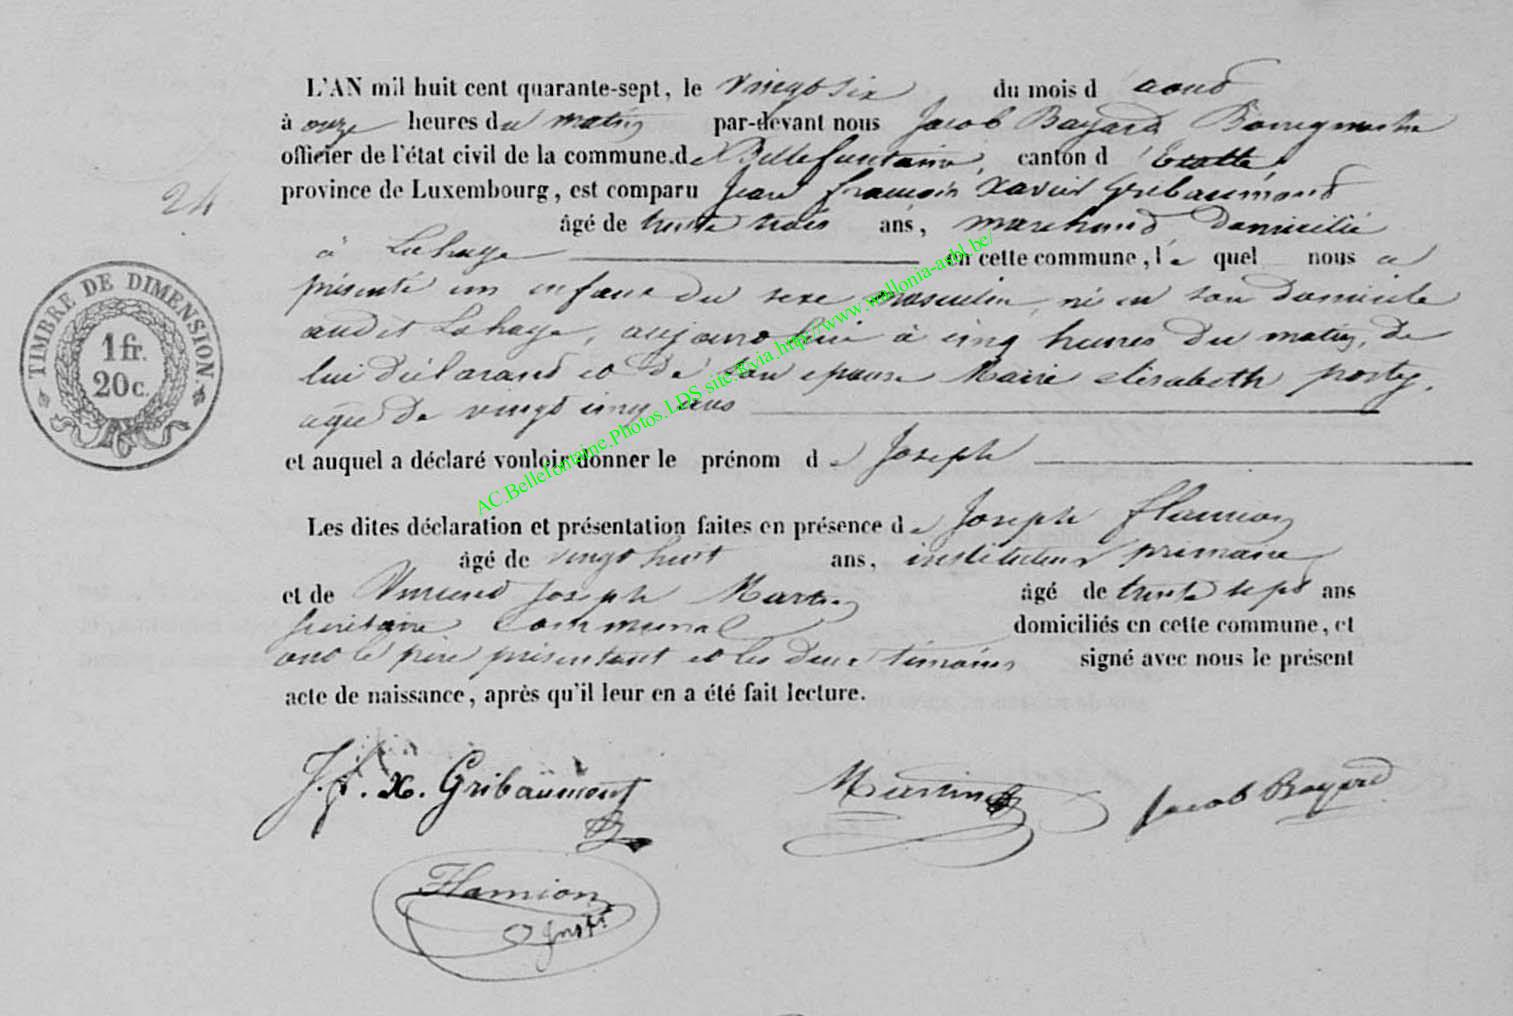 L'AN mil huit cent quarante-sept, le vingt six du mois d'aout
à onze heures du matin par-devant nous Jacob Bayard Bourgmestre
officier de l'état civil de la commune de Bellefontaine, canton d'Etalle,
province de Luxembourg, est comparu Jean françois Xavier Gribaumont
24
âgé de trente trois ans, marchand domicilié
à Lahage en cette commune, le quel nous a
présenté un enfant du sexe masculin, né en son domicile
audit Lahage, aujourd'hui à cinq heures du matin, de
lui déclarant et de son epouse Marie elisabeth
agée de vingt cinq ans
et auquel a déclaré vouloir donner le prénom de Joseph
Les dites déclaration et présentation faites en présence de Joseph flamion
âgé de vingt huit ans, instituteur primaire
et de Vincent Joseph Martin âgé de trente sept ans
secrétaire communal domiciliés en cette commune, et
ont le père présentant et les deux témoins signé avec nous le présent
acte de naissance, après qu'il leur en a été fait lecture.
TIMBRE DE DIMENSION
1 fr.
20 c.
J. f. X. Gribaumont
Martin
Jacob Bayard
Flamion
Inst.
AC.Bellefontaine.Photos.LDS site.&via.http://www.wallonia-asbl.be/